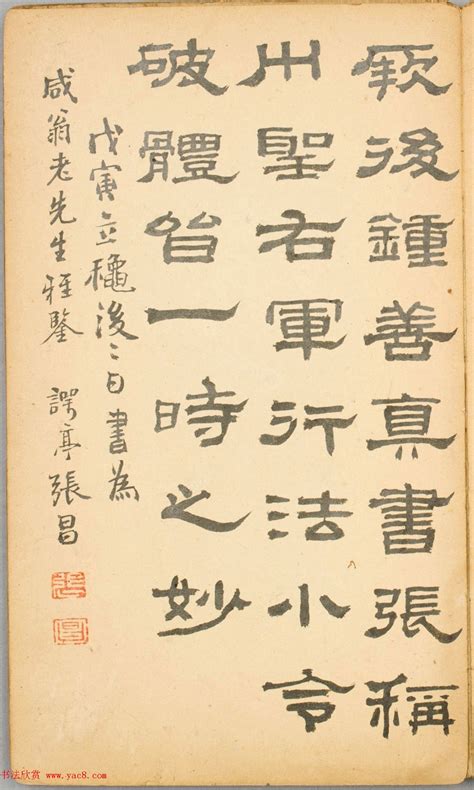 厥後鍾善真書張稱
艸聖右軍行法小令
破體皆一時之妙
戊寅立穐後二日書為
咸翁老先生雅鑒 諤亭張昌
书法欣赏 www.yac8.com